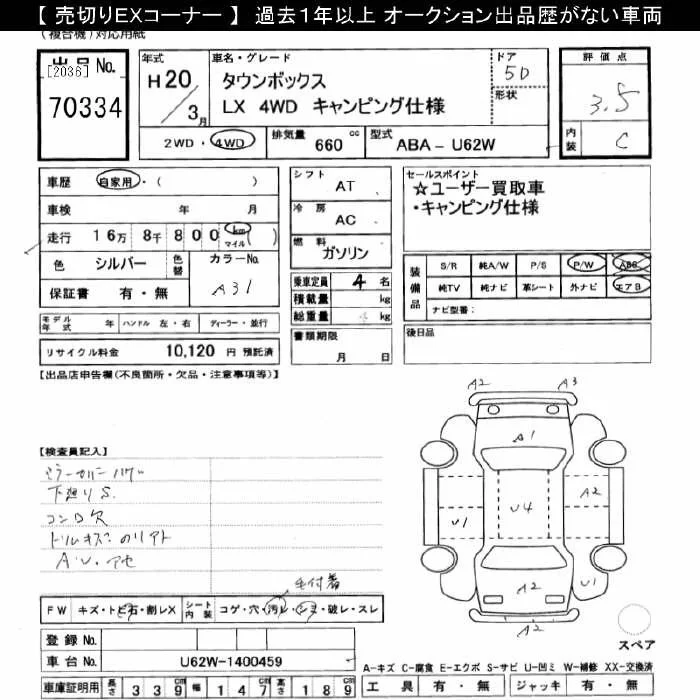 【 売切りEXコーナー 】 過去1年以上 オークション出品歴がない車両
(複合機)対応用紙
出品 No.
[2036]
70334
年式
H20/3月
車名・グレード
タウンボックス
LX 4WD キャンピング仕様
ドア
5D
形状
評価点
3.5
内装
C
2WD・4WD
排気量
660 cc
型式
ABA-U62W
車歴 自家用・( )
車検 年 月
走行 16万 8千 800 km マイル ( )
色 シルバー 色替 カラーNo.
A31
保証書 有・無
モデル年式 年 ハンドル 左・右 ディーラー・並行
リサイクル料金 10,120 円 預託済
シフト AT
冷房 AC
燃料 ガソリン
乗車定員 4 名
積載量 kg
総重量 kg
書類期限
月 日
セールスポイント
☆ユーザー買取車
・キャンピング仕様
装備品
S/R 純A/W P/S P/W ABS
純TV 純ナビ 革シート 外ナビ エアB
ナビ型番:
後日品
【出品店申告欄(不良箇所・欠品・注意事項等)】
【検査員記入】
ミラーカバーハゲ
下廻りS.
コンロ欠
A.U.アセ
毛付着
FW キズ・トビ石・割レX シート内装 コゲ・穴・汚レ・シミ・破レ・スレ
登録 No.
車台 No. U62W-1400459
車庫証明用 長さ 339 幅 147 高さ 189
A2 A3
A1
A2
U4
U1
A2
U1
A2
スペア
A-キズ C-腐食 E-エクボ S-サビ U-凹ミ W-補修 XX-交換済
工具 有・無 ジャッキ 有・無